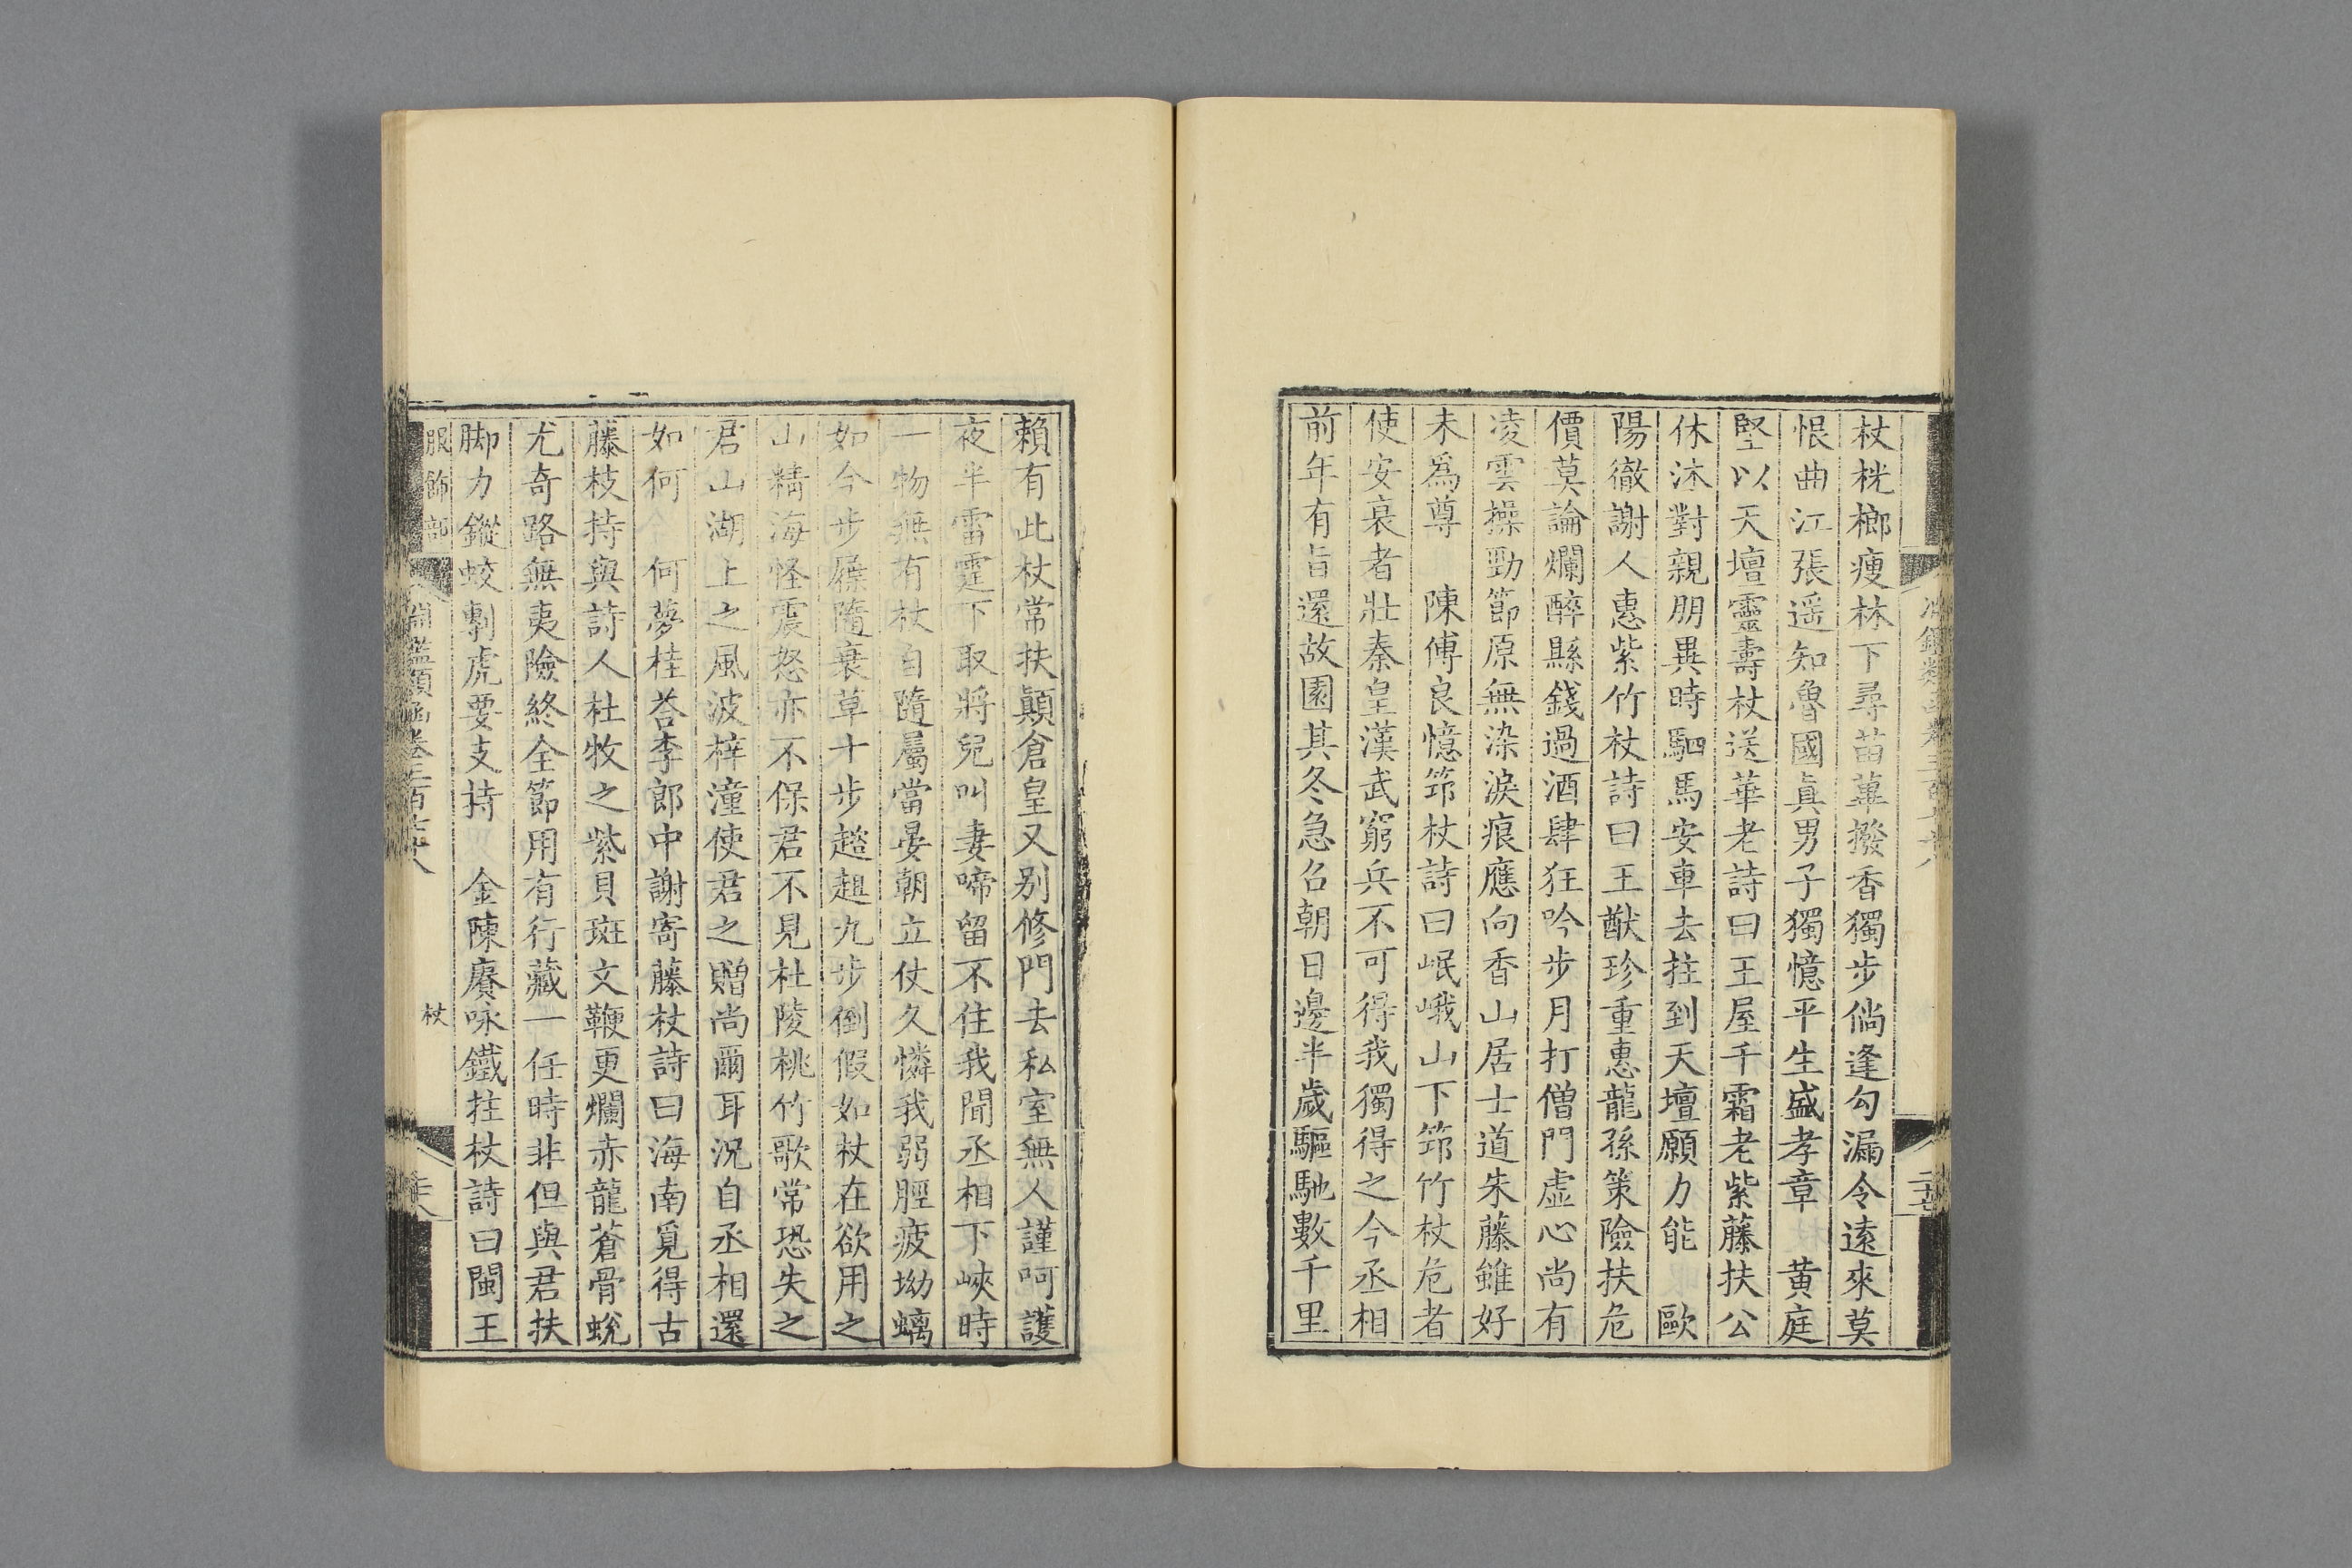 杖桄榔瘦林下尋苗蓽撥香獨步倘逢勾漏令遠來莫
恨曲江張遥知魯國眞男子獨憶平生盛孝章　黄庭
堅以天壇靈壽杖送華老詩曰王屋千霜老紫藤扶公
休沐對親朋異時駟馬安車去拄到天壇願力能　歐
陽徹謝人惠紫竹杖詩曰王猷珍重惠龍孫策險扶危
價莫論爛醉縣錢過酒肆狂吟步月打僧門虚心尚有
凌雲操勁節原無染淚痕應向香山居士道朱藤雖好
未爲尊　陳傅良憶筇杖詩曰岷峨山下筇竹杖危者
使安衰者壯秦皇漢武窮兵不可得我獨得之今丞相
前年有旨還故園其冬急召朝日邊半歲驅馳數千里
賴有此杖常扶顛倉皇又别修門去私室無人謹呵護
夜半雷霆下取將兒叫妻啼留不住我聞丞相下峽時
一物無有杖自隨屬當晏朝立仗久憐我弱脛疲坳螭
如今步屧隨衰草十步趦趄九步倒假如杖在欲用之
山精海怪震怒亦不保君不見杜陵桃竹歌常恐失之
君山湖上之風波梓潼使君之贈尚爾耳況自丞相還
如何　何夢桂荅李郎中謝寄藤杖詩曰海南覓得古
藤枝持與詩人杜牧之紫貝斑文鞭更爛赤龍蒼骨蛻
尤奇路無夷險終全節用有行藏一任時非但與君扶
脚力鏦蛟剸虎要支持　金陳賡咏鐵拄杖詩曰閩王
服飾部
淵鑑類函卷三百七十八
杖